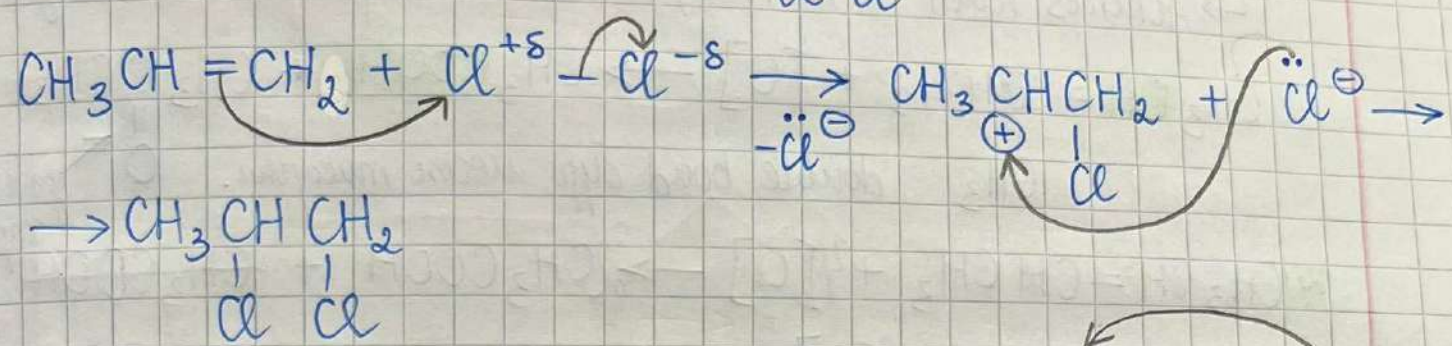 CH₃CH=CH₂ + Cl⁺ᵟ–Cl⁻ᵟ ⟶ CH₃CHCH₂ + C̈l⊖ ⟶
-C̈l⊖ ⊕ Cl
⟶ CH₃CHCH₂
Cl Cl